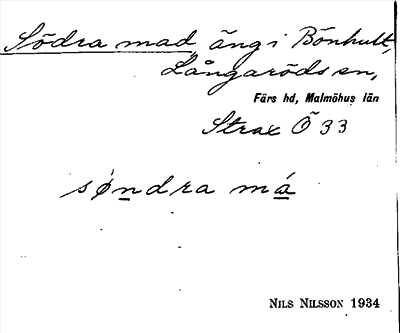 Södra mad, äng i Bönhult,
Långaröds sn,
Färs hd, Malmöhus län
Strax Ö 33
søndra má
NILS NILSSON 1934